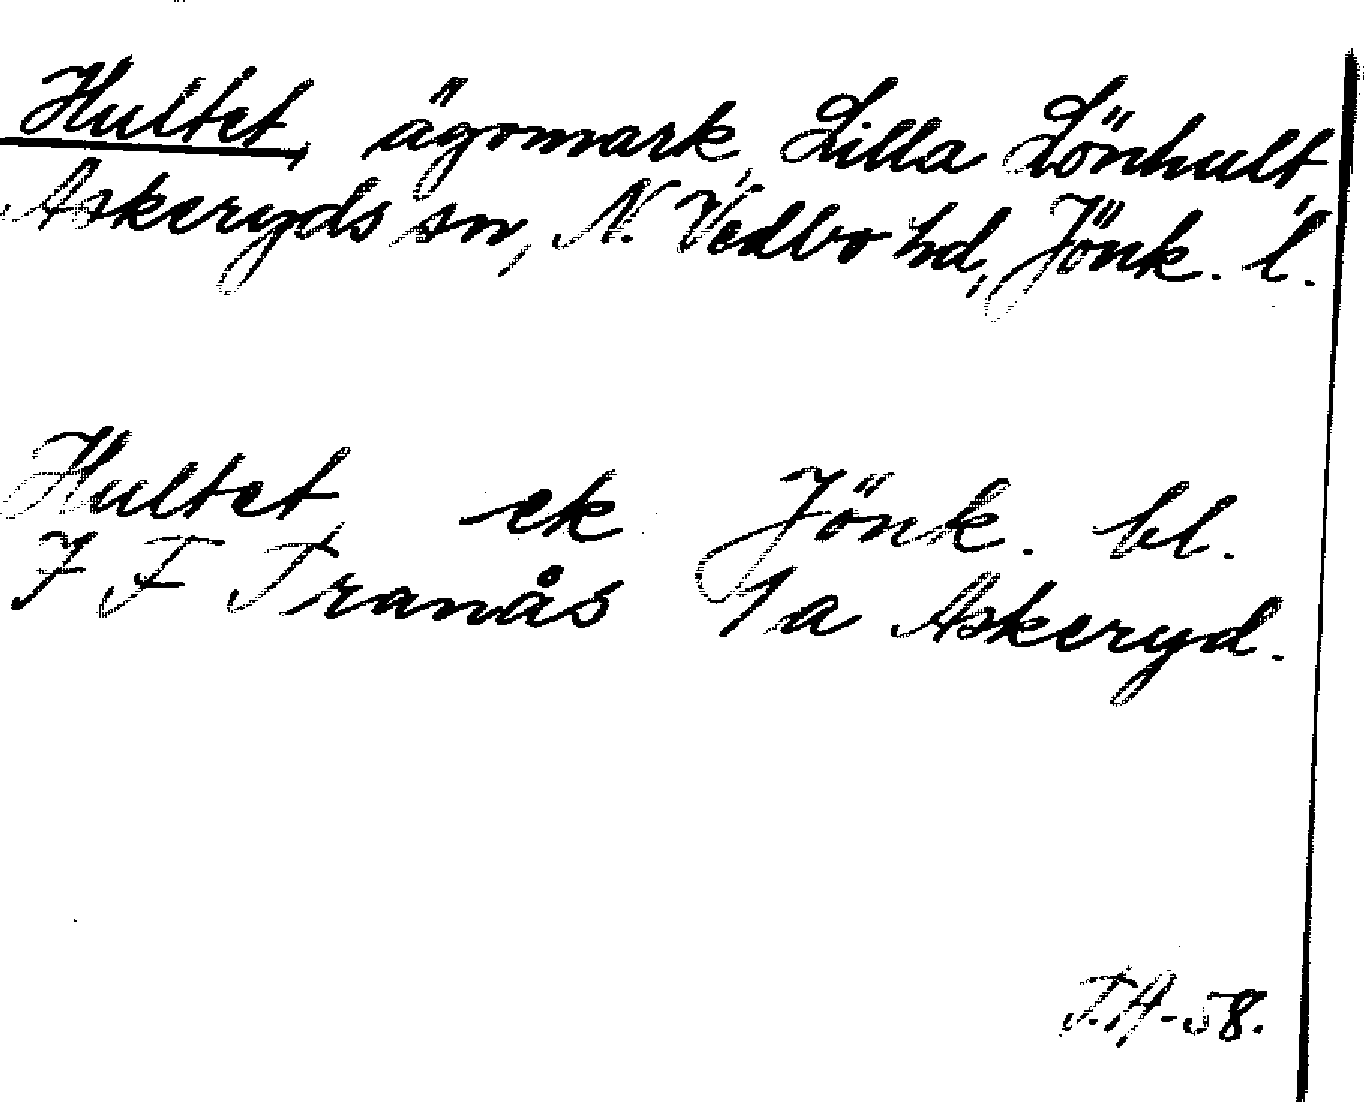 Hultet, ägomark, Lilla Lönhult,
Askeryds sn, N. Vedbo hd, Jönk. l.
Hultet ek Jönk. bl.
7 F Tranås 1a Askeryd.
T.A-58.